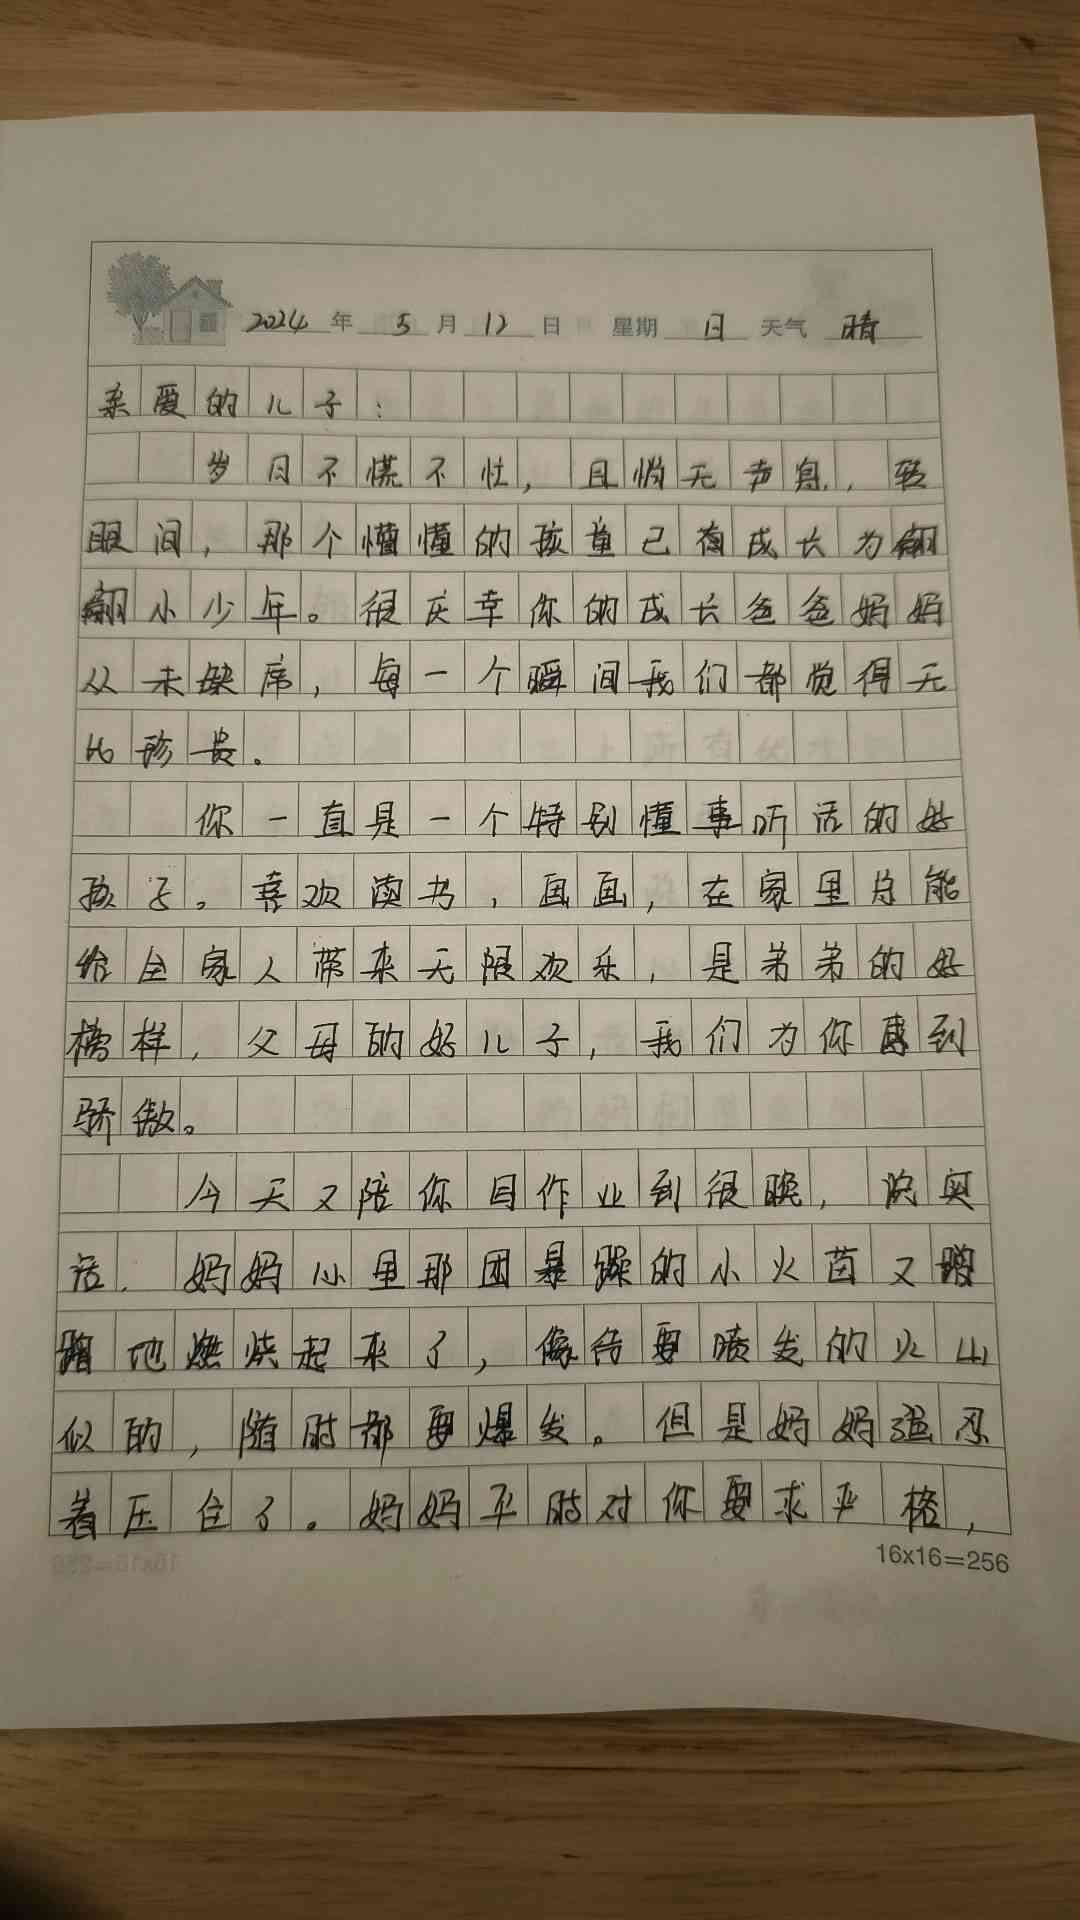 2024年 5月12日 星期日 天气 晴
亲爱的儿子:
岁月不慌不忙,且悄无声息,转
眼间,那个懵懂的孩童已有成长为翩
翩小少年。很庆幸你的成长爸爸妈妈
从未缺席,每一个瞬间我们都觉得无
比珍贵。
你一直是一个特别懂事听话的好
孩子。喜欢读书,画画,在家里总能
给全家人带来无限欢乐,是弟弟的好
榜样,父母的好儿子,我们为你感到
骄傲。
今天又陪你写作业到很晚,说实
话,妈妈心里那团暴躁的小火苗又蹭
蹭地燃烧起来了,像待要喷发的火山
似的,随时都要爆发。但是妈妈强忍
着压住了。妈妈平时对你要求严格,
16x16=256